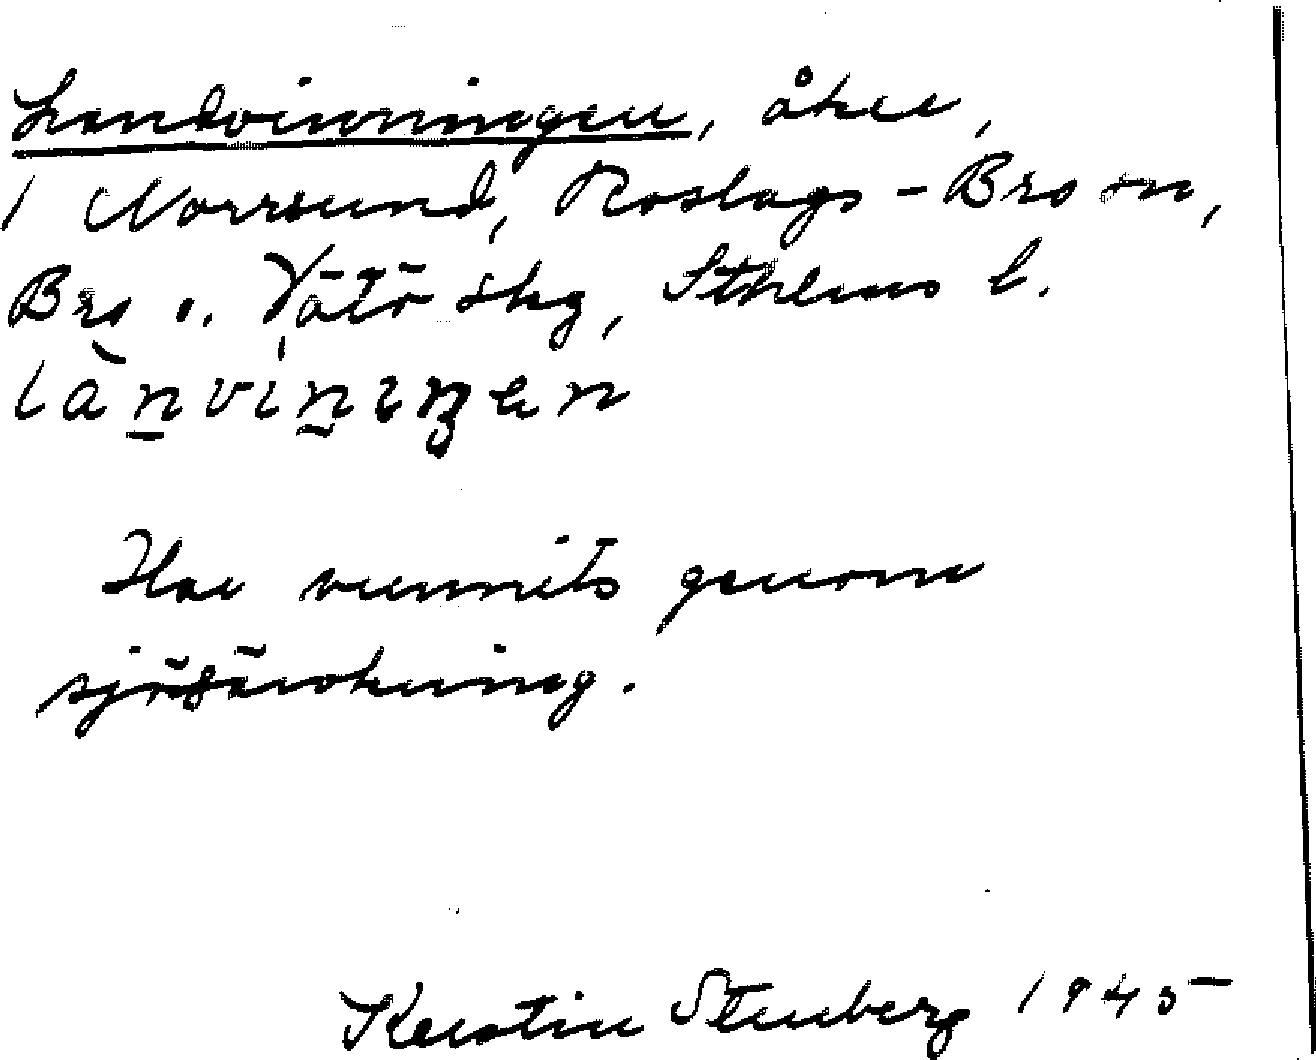 Landvinningen, åker,
1 Norrsund, Roslags-Bro sn,
Bro o. Vätö skg, Sthlms l.
lànviniŋen
Har vunnits genom
sjösänkning.
Kerstin Stenberg 1945